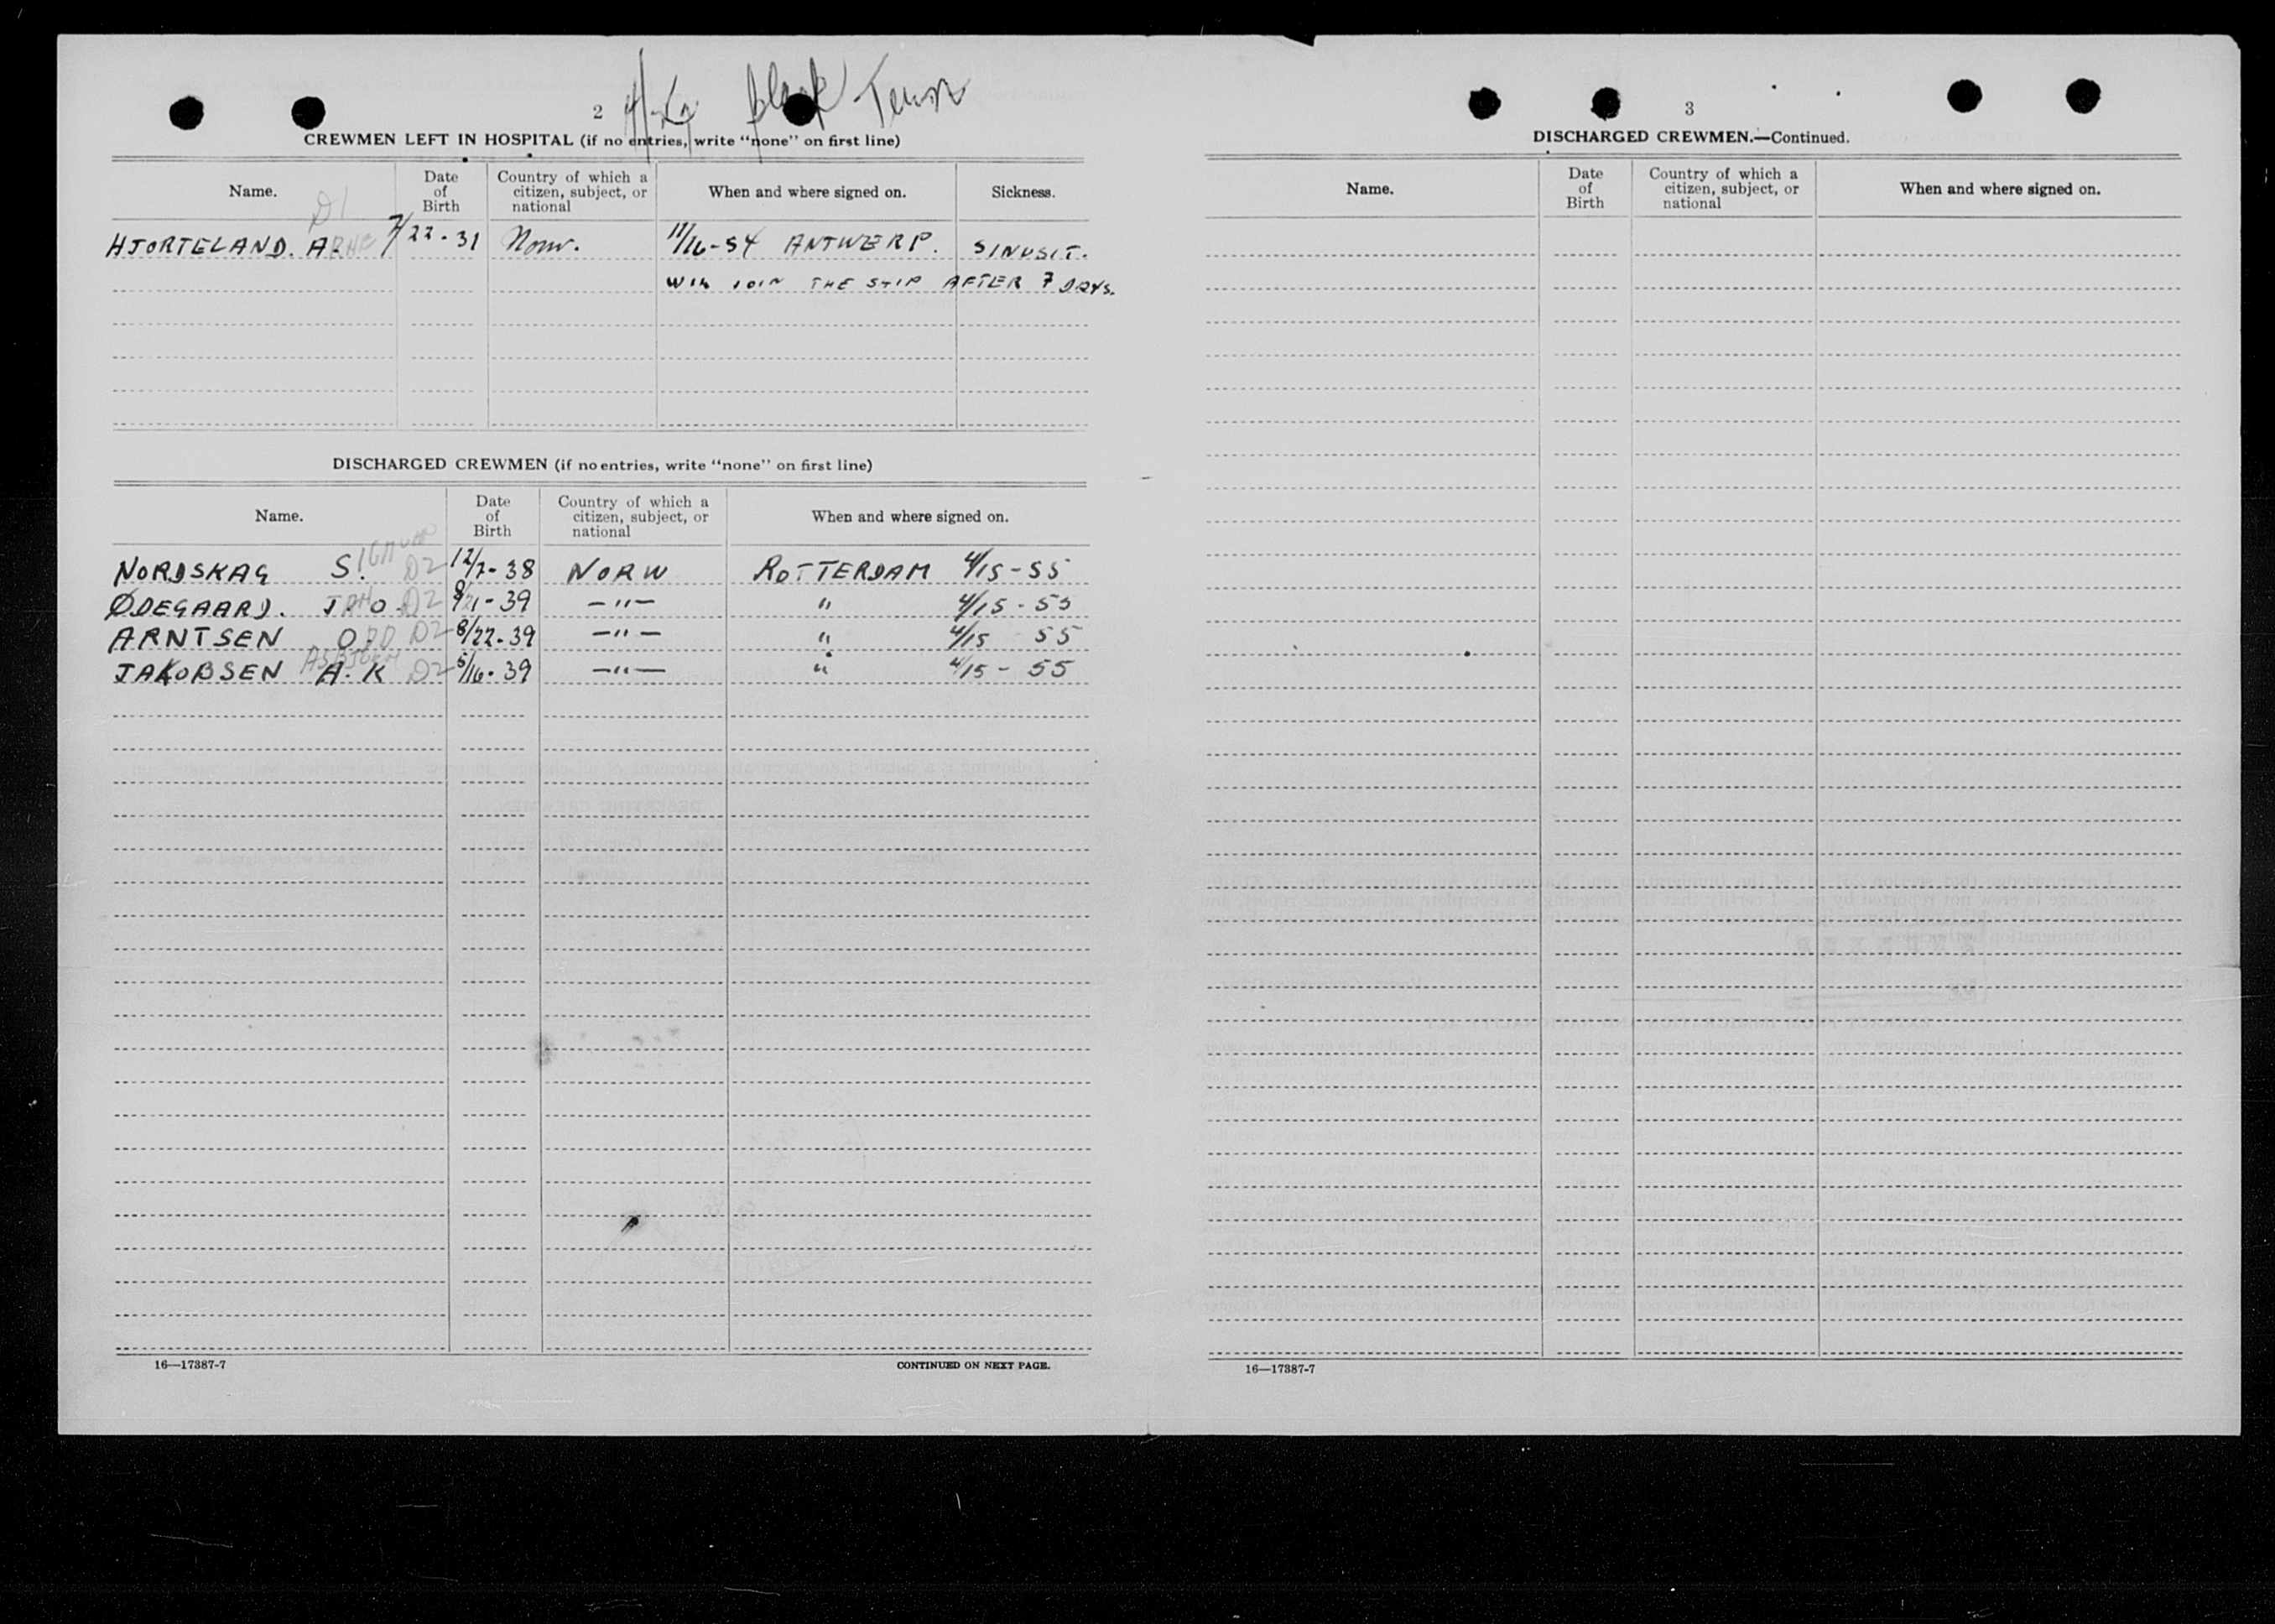 2 Black Tern
CREWMEN LEFT IN HOSPITAL (if no entries, write "none" on first line)
Name. Date of Birth Country of which a citizen, subject, or national When and where signed on. Sickness.
D1
HJORTELAND. ARNE 7/22-31 Norw. 11/16-54 ANTWERP. SINUSIT.
WILL JOIN THE SHIP AFTER 7 DAYS.
DISCHARGED CREWMEN (if no entries, write "none" on first line)
Name. Date of Birth Country of which a citizen, subject, or national When and where signed on.
NORDSKAG S. D2 12/7-38 NORW ROTTERDAM 4/15-55
ØDEGAARD. J. O. D2 9/21-39 —"— " 4/15-55
ARNTSEN ODD D2 8/22-39 —"— " 4/15 55
JAKOBSEN ASBJOERN A. K D2 5/16-39 —"— " 4/15-55
16—17387-7 CONTINUED ON NEXT PAGE.
3
DISCHARGED CREWMEN.—Continued.
Name. Date of Birth Country of which a citizen, subject, or national When and where signed on.
16—17387-7